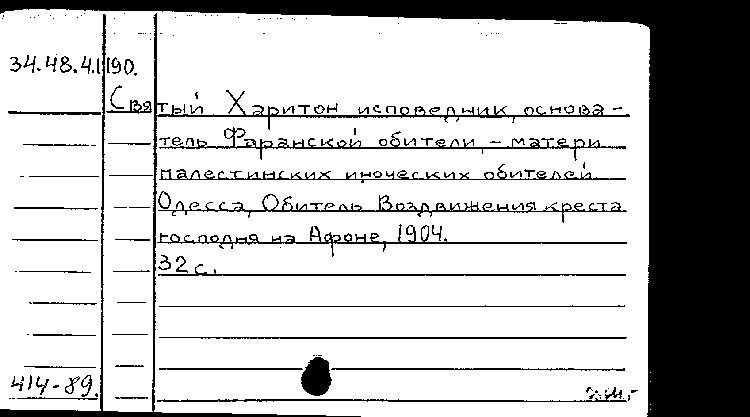 34.48.4.190.
Святый Харитон исповедник, основа-
тель Фаранской обители, – матери
палестинских иноческих обителей
Одесса, Обитель Воздвижения креста
господня на Афоне, 1904.
32 с.
414-89.